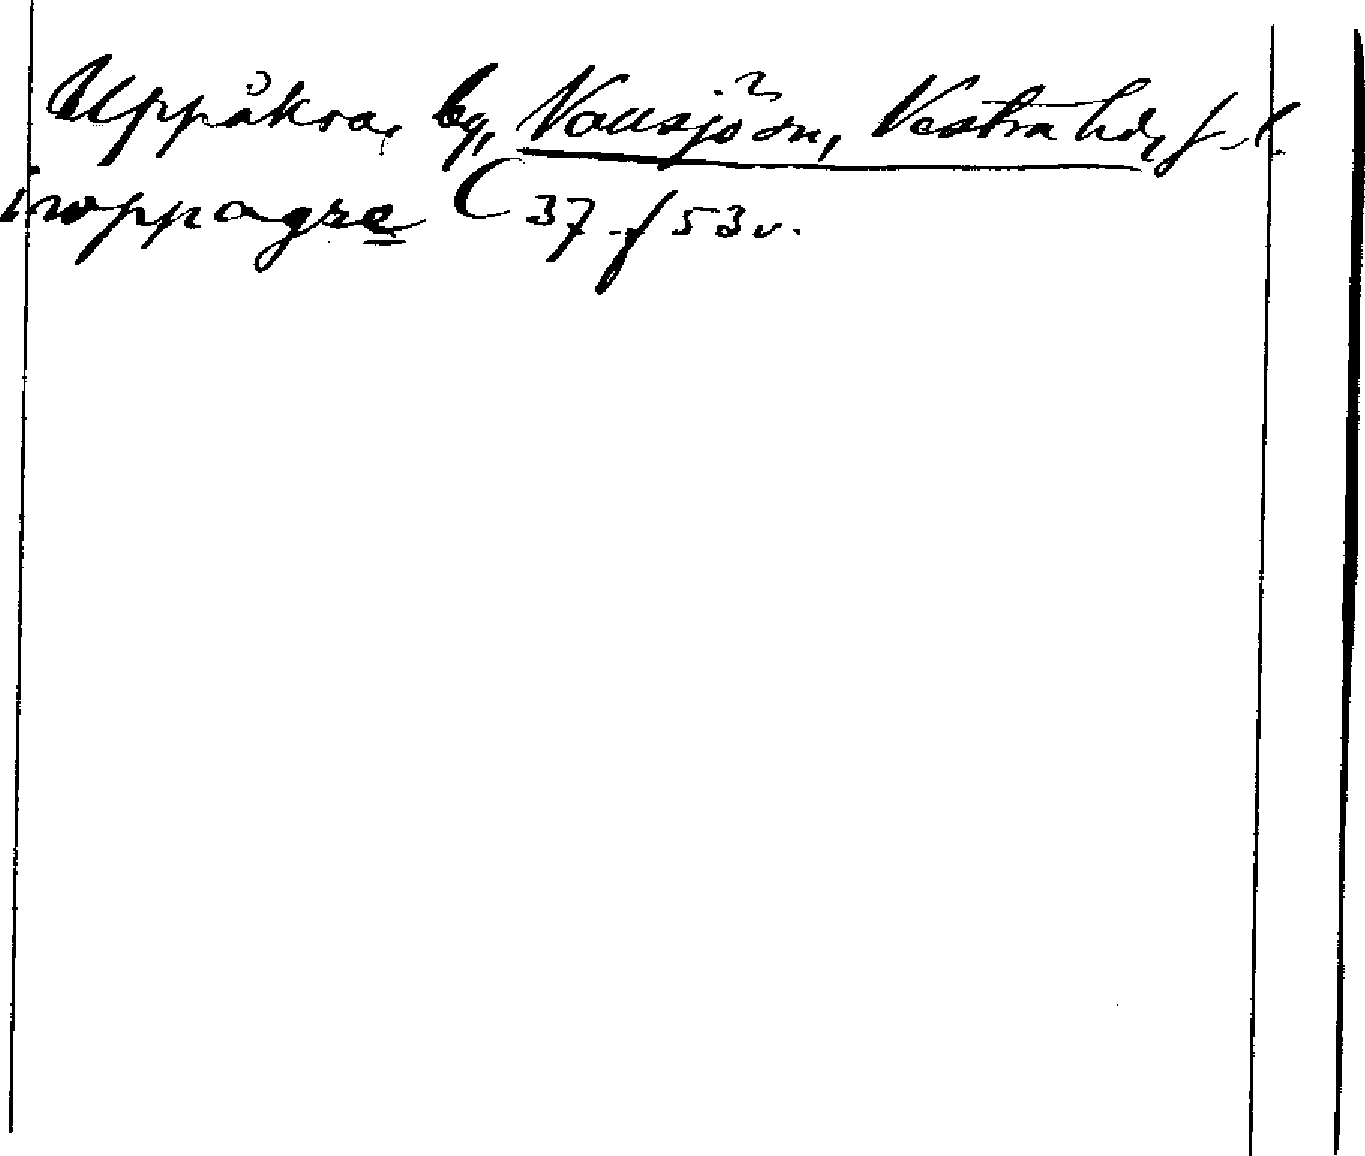 Uppåkra, by, Navsjö sn, Vestra hd, J. l.
i wppagre C 37 f 53 v.